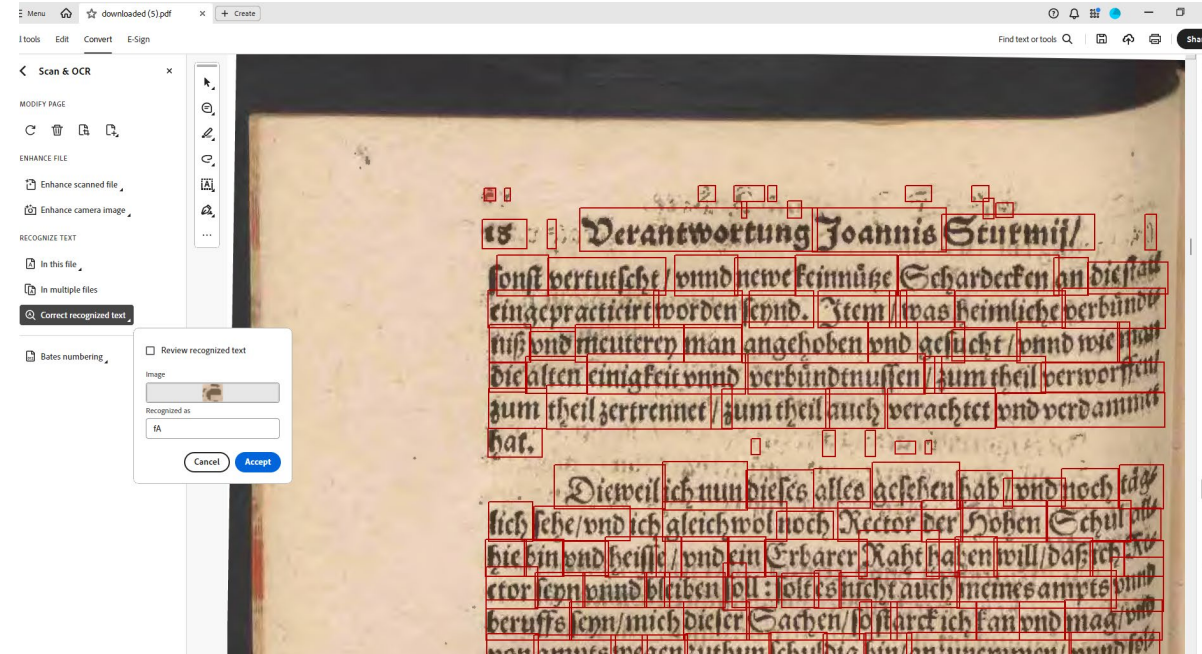 Menu
downloaded (5).pdf
×
+ Create
l tools
Edit
Convert
E-Sign
Find text or tools
Sha
Scan & OCR
×
MODIFY PAGE
ENHANCE FILE
Enhance scanned file
Enhance camera image
RECOGNIZE TEXT
In this file
In multiple files
Correct recognized text
Bates numbering
Review recognized text
Image
Recognized as
fA
Cancel
Accept
18 Verantwortung Joannis Sturmij/
sonst vertutscht/ vnnd newe keinnütze Schardecken an die statt
eingepracticirt worden seynd. Item/ was heimliche verbündt
niß vnd meuterey man angehoben vnd gesucht/ vnnd wie man
die alten einigkeit vnnd verbündtnussen/ zum theil verworffen/
zum theil zertrennet/ zum theil auch verachtet vnd verdammet
hat.
Dieweil ich nun dieses alles gesehen hab/ vnd noch täg-
lich sehe/ vnd ich gleichwol noch Rector der Hohen Schul all-
hie bin vnd heisse/ vnd ein Erbarer Raht haben will/ daß ich Re-
ctor seyn vnnd bleiben soll: solt es nicht auch meines ampts vnnd
beruffs seyn/ mich dieser Sachen/ so starck ich kan vnd mag/ vnd